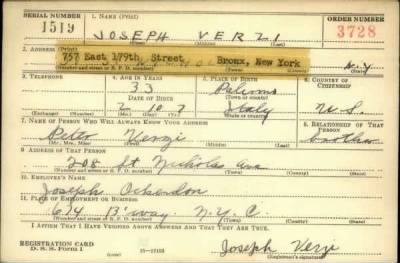 SERIAL NUMBER 1. NAME (Print) ORDER NUMBER
1519 JOSEPH VERZI 3728
(First) (Middle) (Last)
2. ADDRESS (Print)
757 East 179th Street, Bronx, New York N.Y
(Number and street or R. F. D. number) (Town) (County) (State)
3. TELEPHONE 4. AGE IN YEARS 5. PLACE OF BIRTH 6. COUNTRY OF CITIZENSHIP
33
DATE OF BIRTH (Town or county)
2 10 7 Italy U.S.
(Exchange) (No.) (Mo.) (Day) (Yr.) (State or country)
7. NAME OF PERSON WHO WILL ALWAYS KNOW YOUR ADDRESS 8. RELATIONSHIP OF THAT PERSON
Peter Verzi brother
(Mr., Mrs., Miss) (First) (Middle) (Last)
9. ADDRESS OF THAT PERSON
208 St Nicholas Ave
(Number and street or R. F. D. number) (Town) (County) (State)
10. EMPLOYER'S NAME
Joseph
11. PLACE OF EMPLOYMENT OR BUSINESS
674 B'way. N.Y.C.
(Number and street or R. F. D. number) (Town) (County) (State)
I AFFIRM THAT I HAVE VERIFIED ABOVE ANSWERS AND THAT THEY ARE TRUE.
REGISTRATION CARD
D. S. S. Form 1 Joseph Verzi
(Registrant's signature)